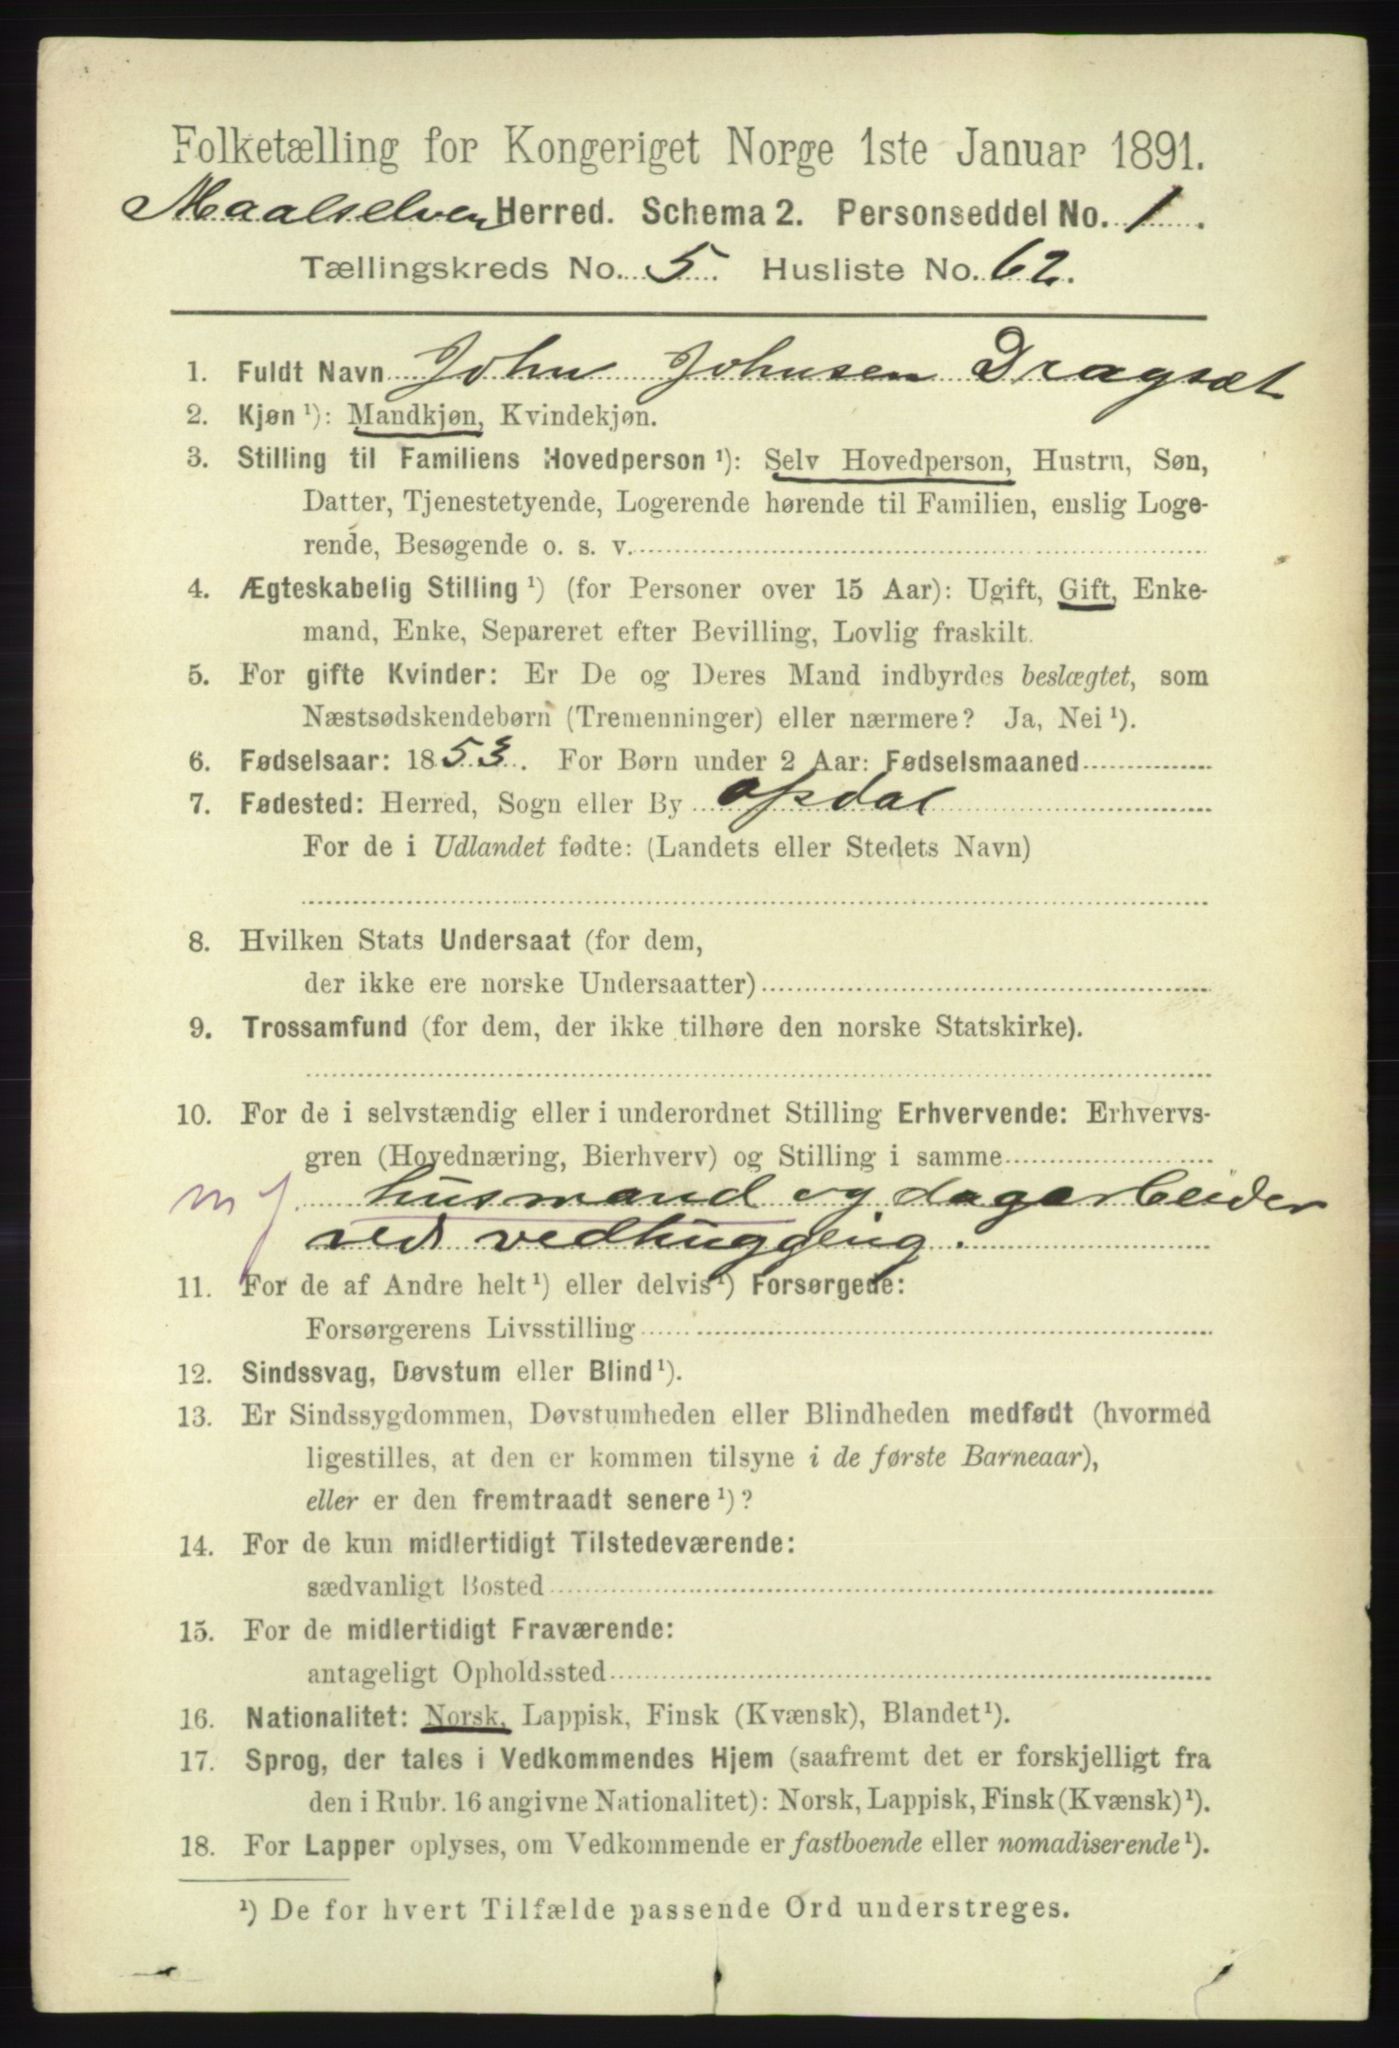 Folketælling for Kongeriget Norge 1ste Januar 1891.
Maalselven Herred. Schema 2. Personseddel No. 1.
Tællingskreds No. 5. Husliste No. 62.
1. Fuldt Navn John Johnsen Dragsæt
2. Kjøn ¹): Mandkjøn, Kvindekjøn.
3. Stilling til Familiens Hovedperson ¹): Selv Hovedperson, Hustru, Søn,
Datter, Tjenestetyende, Logerende hørende til Familien, enslig Loge-
rende, Besøgende o. s. v.
4. Ægteskabelig Stilling ¹) (for Personer over 15 Aar): Ugift, Gift, Enke-
mand, Enke, Separeret efter Bevilling, Lovlig fraskilt.
5. For gifte Kvinder: Er De og Deres Mand indbyrdes beslægtet, som
Næstsødskendebørn (Tremenninger) eller nærmere? Ja, Nei ¹).
6. Fødselsaar: 1853. For Børn under 2 Aar: Fødselsmaaned
7. Fødested: Herred, Sogn eller By Opdal
For de i Udlandet fødte: (Landets eller Stedets Navn)
8. Hvilken Stats Undersaat (for dem,
der ikke ere norske Undersaatter)
9. Trossamfund (for dem, der ikke tilhøre den norske Statskirke).
10. For de i selvstændig eller i underordnet Stilling Erhvervende: Erhvervs-
gren (Hovednæring, Bierhverv) og Stilling i samme
mf husmand og dagarbeider
ved vedhugging.
11. For de af Andre helt ¹) eller delvis ¹) Forsørgede:
Forsørgerens Livsstilling
12. Sindssvag, Døvstum eller Blind ¹).
13. Er Sindssygdommen, Døvstumheden eller Blindheden medfødt (hvormed
ligestilles, at den er kommen tilsyne i de første Barneaar),
eller er den fremtraadt senere ¹)?
14. For de kun midlertidigt Tilstedeværende:
sædvanligt Bosted
15. For de midlertidigt Fraværende:
antageligt Opholdssted
16. Nationalitet: Norsk, Lappisk, Finsk (Kvænsk), Blandet ¹).
17. Sprog, der tales i Vedkommendes Hjem (saafremt det er forskjelligt fra
den i Rubr. 16 angivne Nationalitet): Norsk, Lappisk, Finsk (Kvænsk) ¹).
18. For Lapper oplyses, om Vedkommende er fastboende eller nomadiserende ¹).
¹) De for hvert Tilfælde passende Ord understreges.